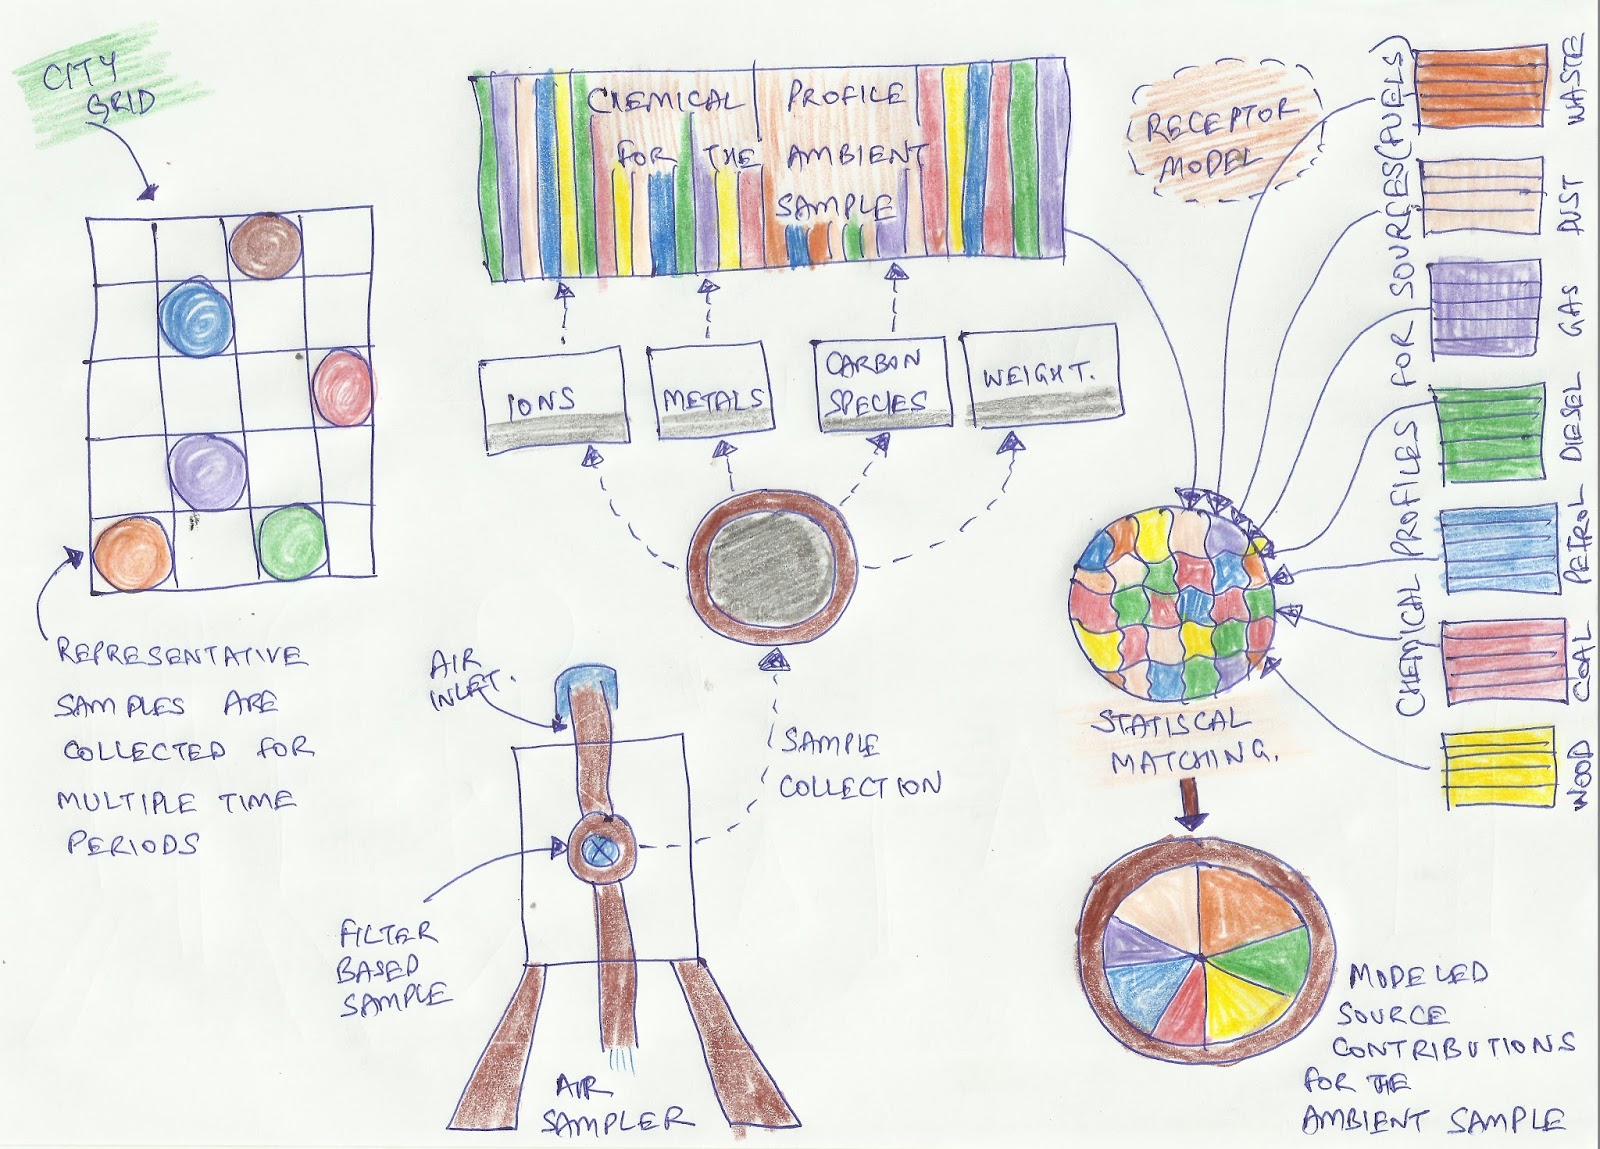 CITY
GRID
REPRESENTATIVE
SAMPLES ARE
COLLECTED FOR
MULTIPLE TIME
PERIODS
AIR
INLET.
FILTER
BASED
SAMPLE
AIR
SAMPLER
SAMPLE
COLLECTION
IONS
METALS
CARBON
SPECIES
WEIGHT.
CHEMICAL PROFILE
FOR THE AMBIENT
SAMPLE
RECEPTOR
MODEL
CHEMICAL PROFILES FOR SOURCES(FUELS)
WASTE
DUST
GAS
DIESEL
PETROL
COAL
WOOD
STATISCAL
MATCHING.
MODELED
SOURCE
CONTRIBUTIONS
FOR THE
AMBIENT SAMPLE